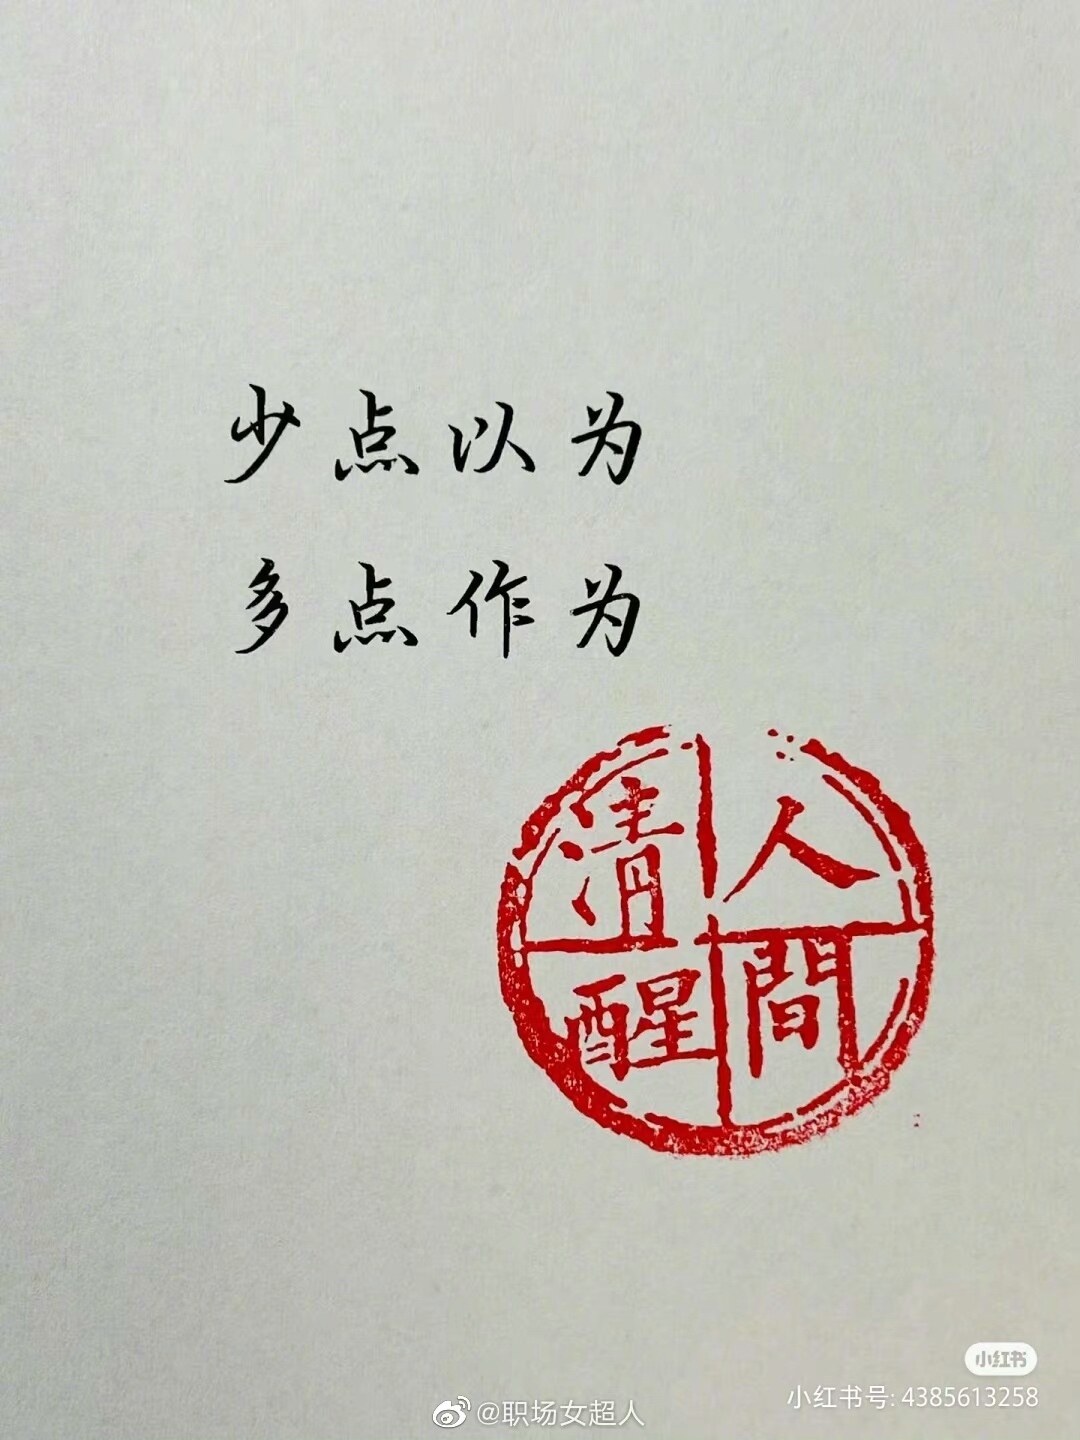 少点以为
多点作为
人間
清醒
小红书
小红书号: 4385613258
@职场女超人